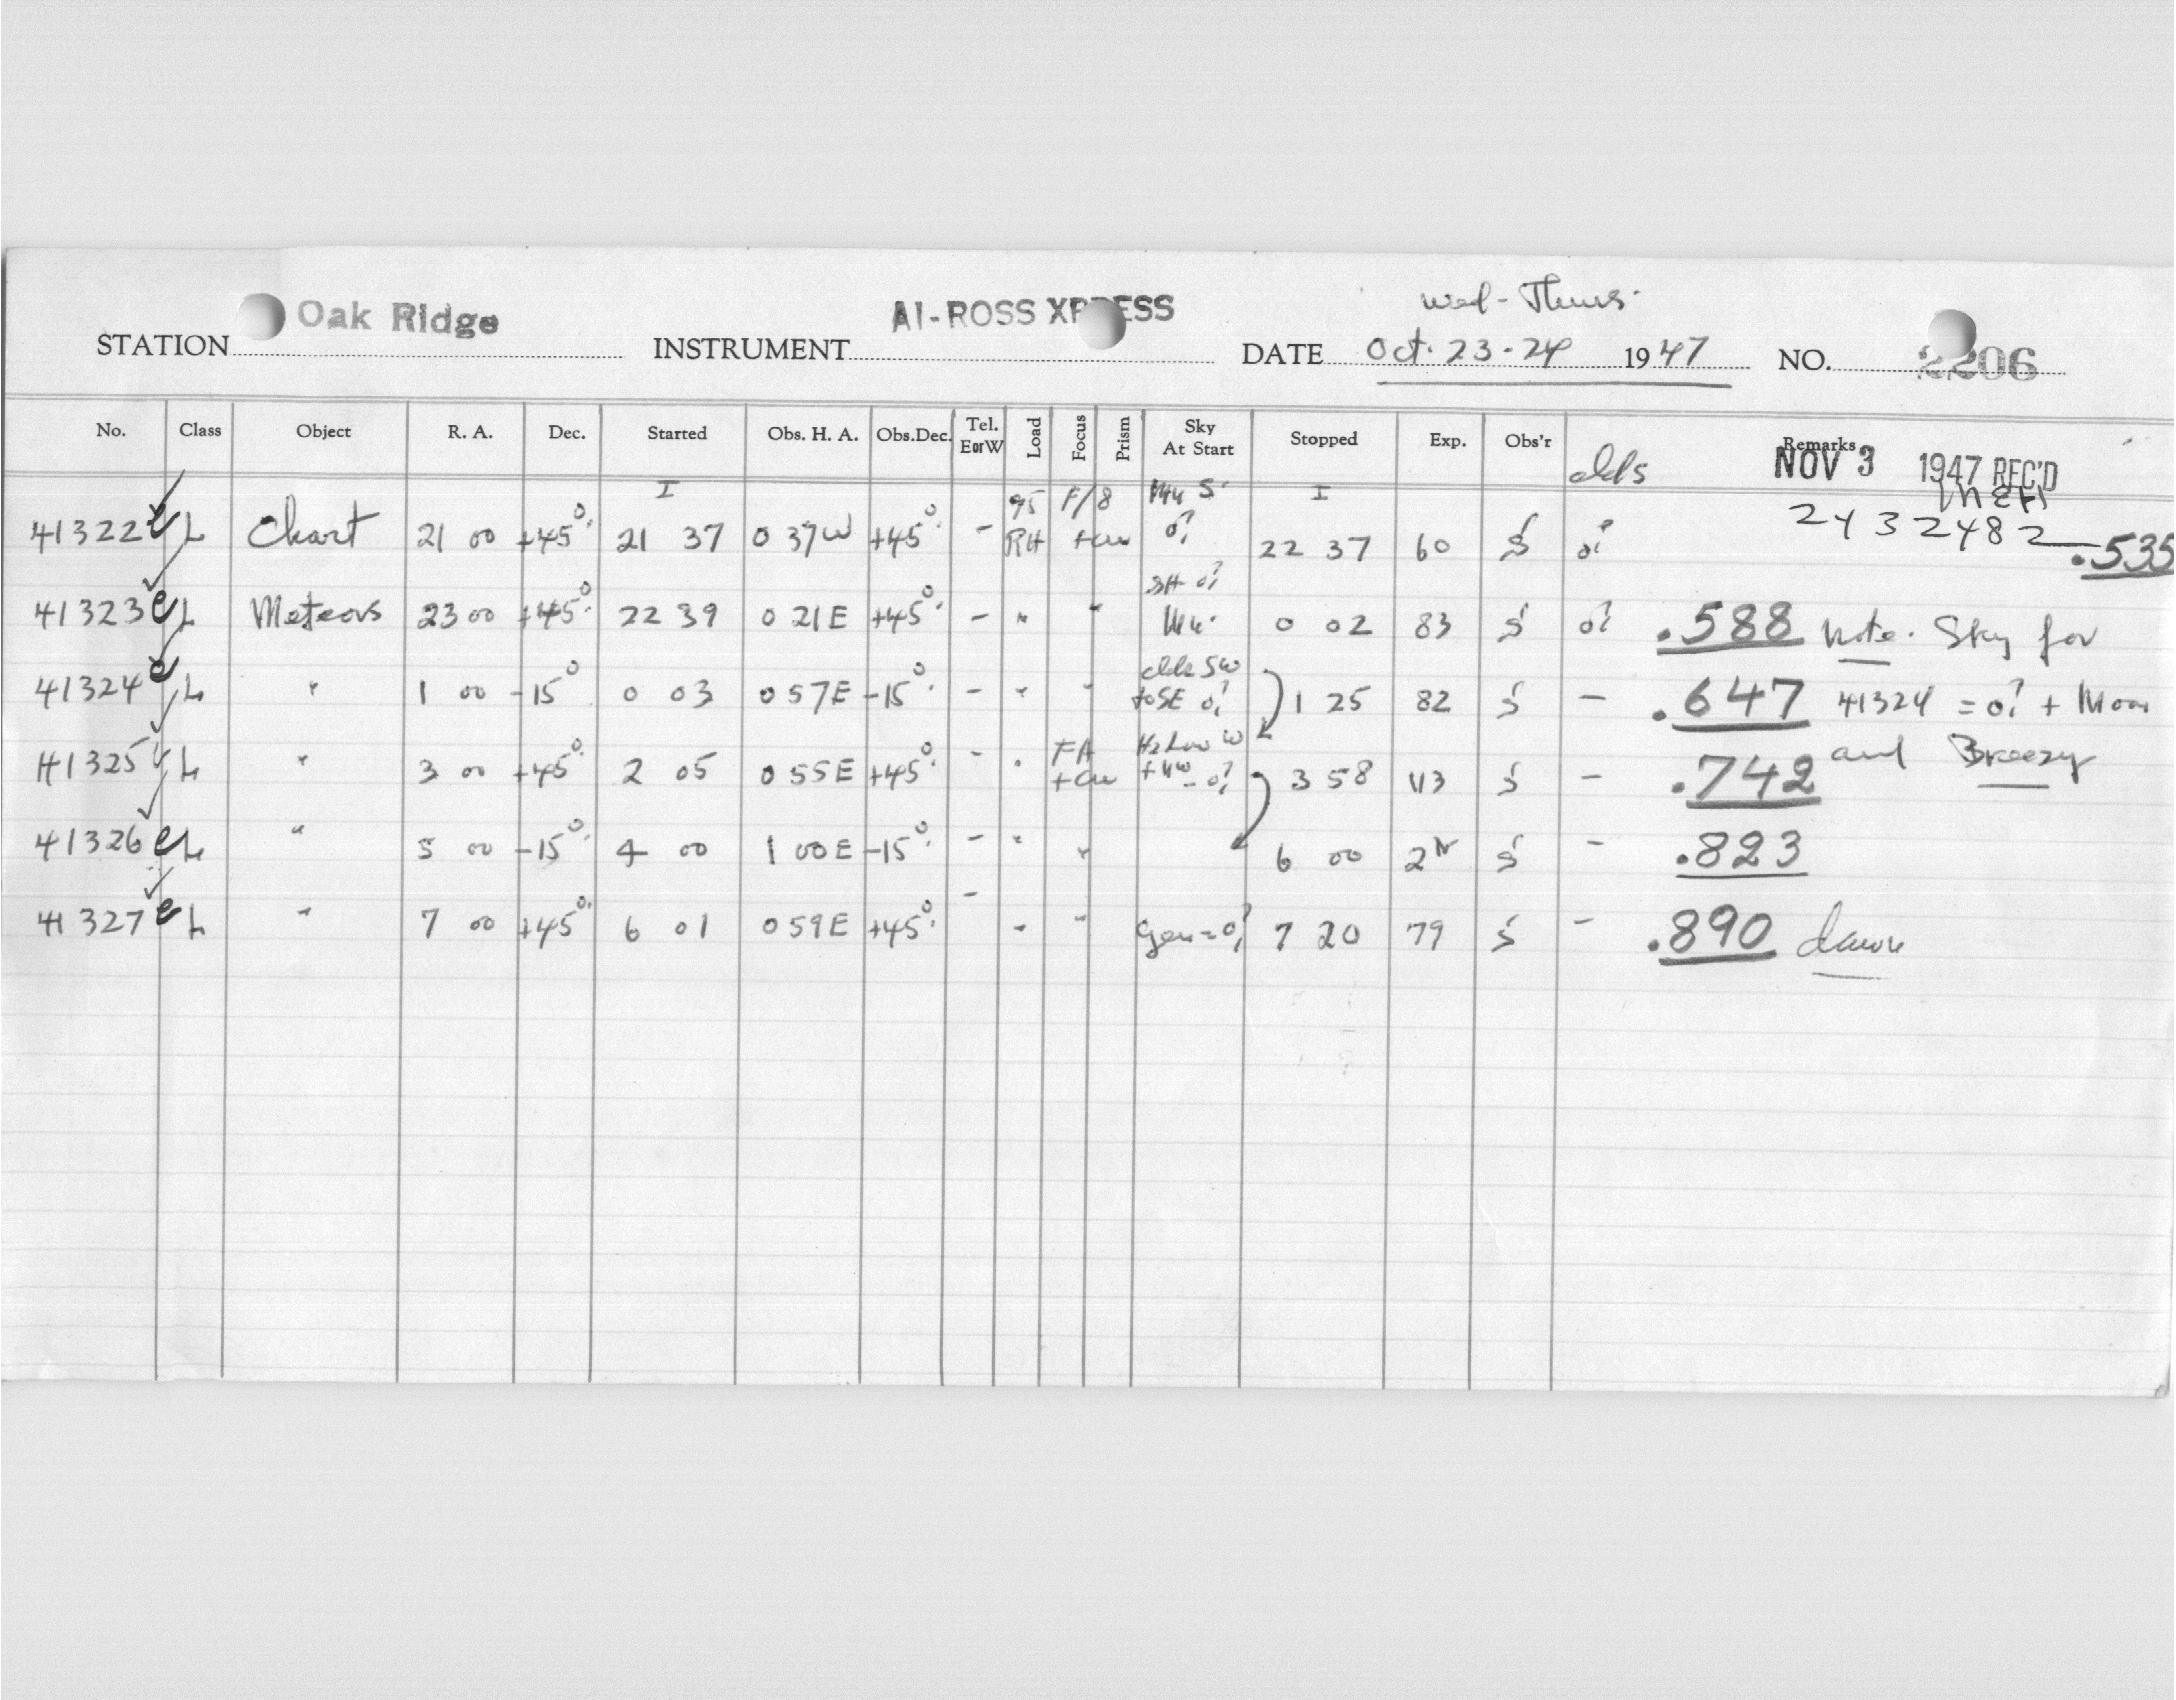 Wed - Thurs.
STATION Oak Ridge INSTRUMENT AI-ROSS XPRESS DATE Oct. 23-24 1947 NO. 2206
No. Class Object R. A. Dec. Started Obs. H. A. Obs.Dec. Tel. E or W Load Focus Prism Sky At Start Stopped Exp. Obs'r Remarks
clds NOV 3 1947 REC'D
I 95 F/8 S. I
41322 e L Chart 21 00 +45° 21 37 0 37W +45° - RH 0? 22 37 60 S 0? 2432482 .535
SH 0?
41323 e L Meteors 23 00 +45° 22 39 0 21E +45° - " " 0 02 83 S 0? .588 Note. Sky for
clds SW
41324 e L " 1 00 -15° 0 03 0 57E -15° - " " to SE 0? 1 25 82 S - .647 41324 = 0? + Moon
Hz Low W
41325 L " 3 00 +45° 2 05 0 55E +45° - " FA + NW - 0? 3 58 113 S - .742 and Breezy
41326 e L " 5 00 -15° 4 00 1 00E -15° - " " 6 00 2h S - .823
41327 e L " 7 00 +45° 6 01 0 59E +45° - " " Gen = 0? 7 20 79 S - .890 dawn